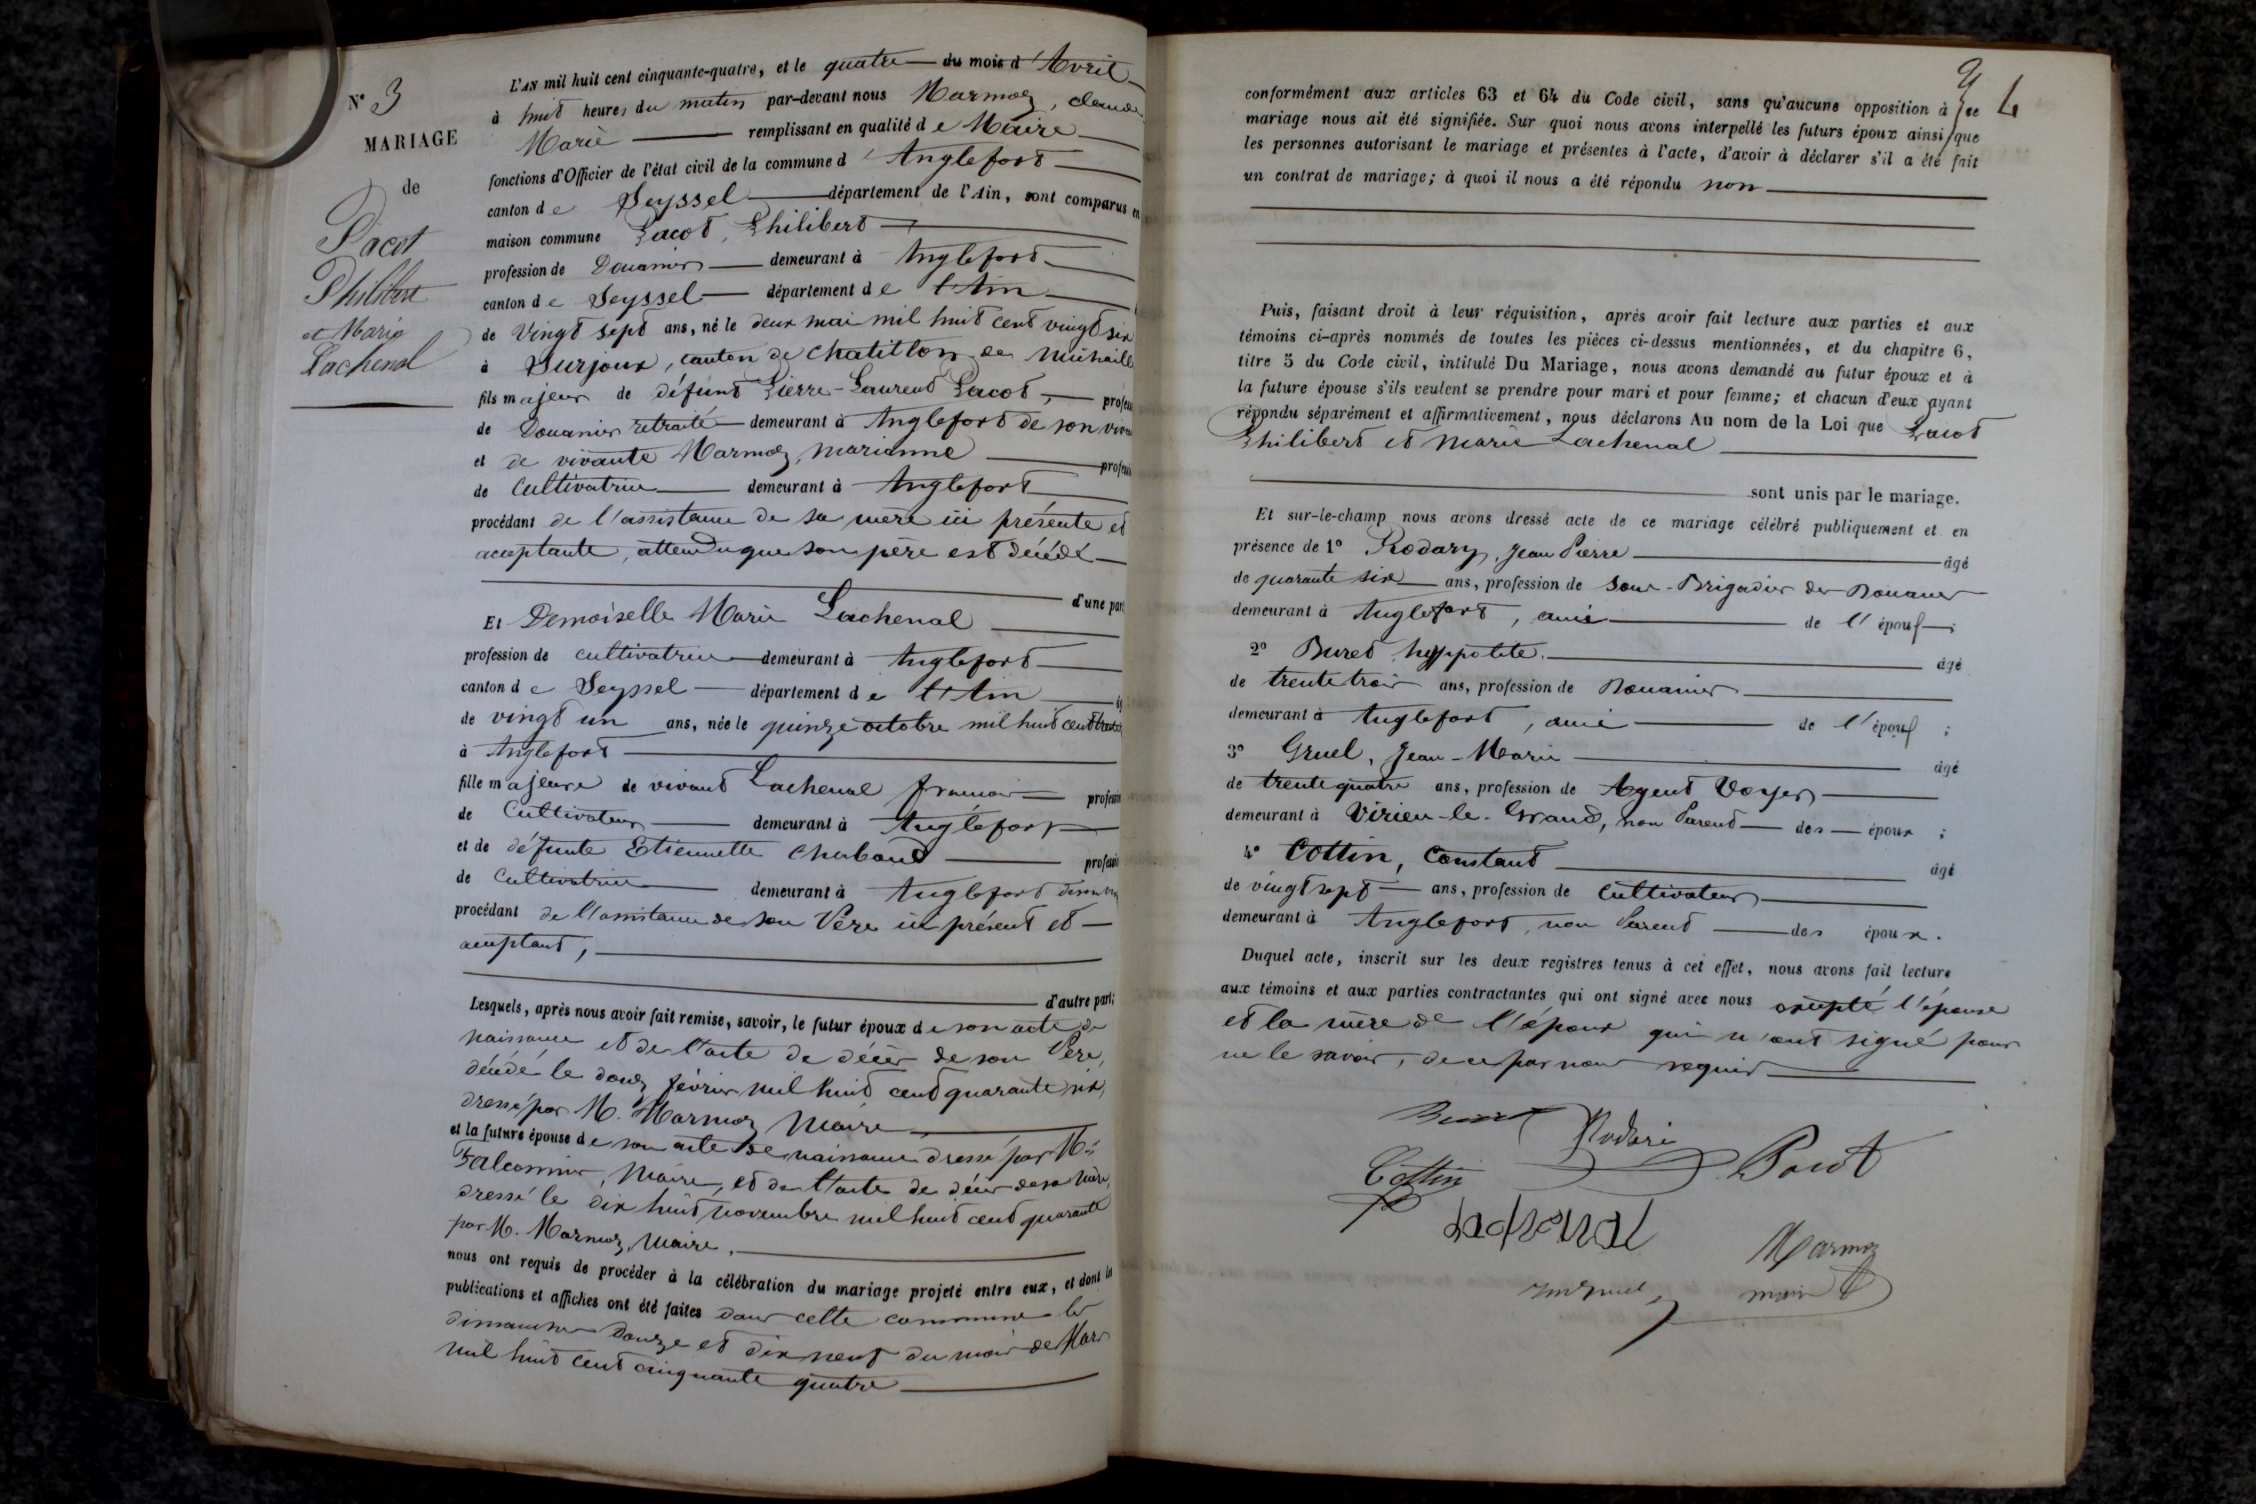 N° 3
MARIAGE
de
Pacot
Philibert
et Marie
Lachenal
L'AN mil huit cent cinquante-quatre, et le quatre du mois d'Avril
à huit heures du matin par-devant nous Marmoz, claude
Marie remplissant en qualité de Maire
fonctions d'Officier de l'état civil de la commune d'Anglefort
canton de Seyssel département de l'Ain, sont comparus en
maison commune Pacot, Philibert
profession de Douanier demeurant à Anglefort
canton de Seyssel département de l'Ain
de vingt sept ans, né le deux mai mil huit cent vingt six
à Surjoux, canton de Chatillon de Michaille
fils majeur de défunt Pierre-Laurent Pacot, profess
de Douanier retraité demeurant à Anglefort de son viva
et de vivante Marmoz, marianne profess
de Cultivatrice demeurant à Anglefort
procédant de l'assistance de sa mère ici présente et
acceptante, attendu que son père est décédé
d'une part
Et Demoiselle Marie Lachenal
profession de cultivatrice demeurant à Anglefort
canton de Seyssel département de l'Ain
de vingt un ans, née le quinze octobre mil huit cent
à Anglefort
fille majeure de vivant Lachenal françois profession
de Cultivateur demeurant à Anglefort
et de défunte Etiennette Chaboud profession
de Cultivatrice demeurant à Anglefort
procédant de l'assistance de son Père ici présent et
acceptant,
d'autre part;
Lesquels, après nous avoir fait remise, savoir, le futur époux de son acte de
naissance et de l'acte de décès de son Père,
décédé le douze février mil huit cent quarante six,
dressé par M. Marmoz Maire
et la future épouse de son acte de naissance dressé par M.
Falconnier, Maire, et de l'acte de décès de sa Mère,
dressé le dix huit novembre mil huit cent quarante
par M. Marmoz, Maire.
nous ont requis de procéder à la célébration du mariage projeté entre eux, et dont les
publications et affiches ont été faites dans cette commune les
dimanches Douze et dix neuf du mois de Mars
mil huit cent cinquante quatre
4
conformément aux articles 63 et 64 du Code civil, sans qu'aucune opposition à ce
mariage nous ait été signifiée. Sur quoi nous avons interpellé les futurs époux ainsi que
les personnes autorisant le mariage et présentes à l'acte, d'avoir à déclarer s'il a été fait
un contrat de mariage; à quoi il nous a été répondu non
Puis, faisant droit à leur réquisition, après avoir fait lecture aux parties et aux
témoins ci-après nommés de toutes les pièces ci-dessus mentionnées, et du chapitre 6,
titre 5 du Code civil, intitulé Du Mariage, nous avons demandé au futur époux et à
la future épouse s'ils veulent se prendre pour mari et pour femme; et chacun d'eux ayant
répondu séparément et affirmativement, nous déclarons Au nom de la Loi que Pacot
Philibert et Marie Lachenal
sont unis par le mariage.
Et sur-le-champ nous avons dressé acte de ce mariage célébré publiquement et en
présence de 1° Rodary, Jean Pierre âgé
de quarante six ans, profession de Sous-Brigadier des Douanes
demeurant à Anglefort, ami de l'époux;
2° Buret hyppolite. âgé
de trente trois ans, profession de Douanier
demeurant à Anglefort, ami de l'époux;
3° Gruel, Jean-Marie âgé
de trente quatre ans, profession de Agent Voyer
demeurant à Virieu-le-Grand, non Parent des époux;
4° Cottin, Constant âgé
de vingt sept ans, profession de Cultivateur
demeurant à Anglefort, non Parent des époux.
Duquel acte, inscrit sur les deux registres tenus à cet effet, nous avons fait lecture
aux témoins et aux parties contractantes qui ont signé avec nous excepté l'épouse
et la mère de l'époux qui n'ont signé pour
ne le savoir, de ce par nous requis
Buret Rodari
Cottin Pacot
Lachenal
Marmoz
maire